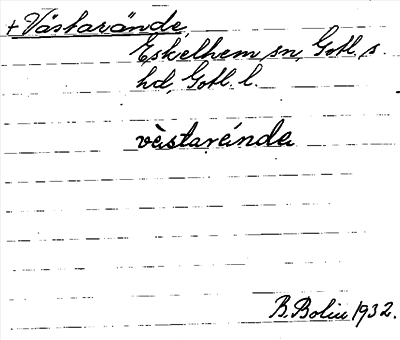 + Västarände,
Eskelhem sn, Gotl. s.
hd, Gotl. l.
vä̀starända
B. Bolin 1932.